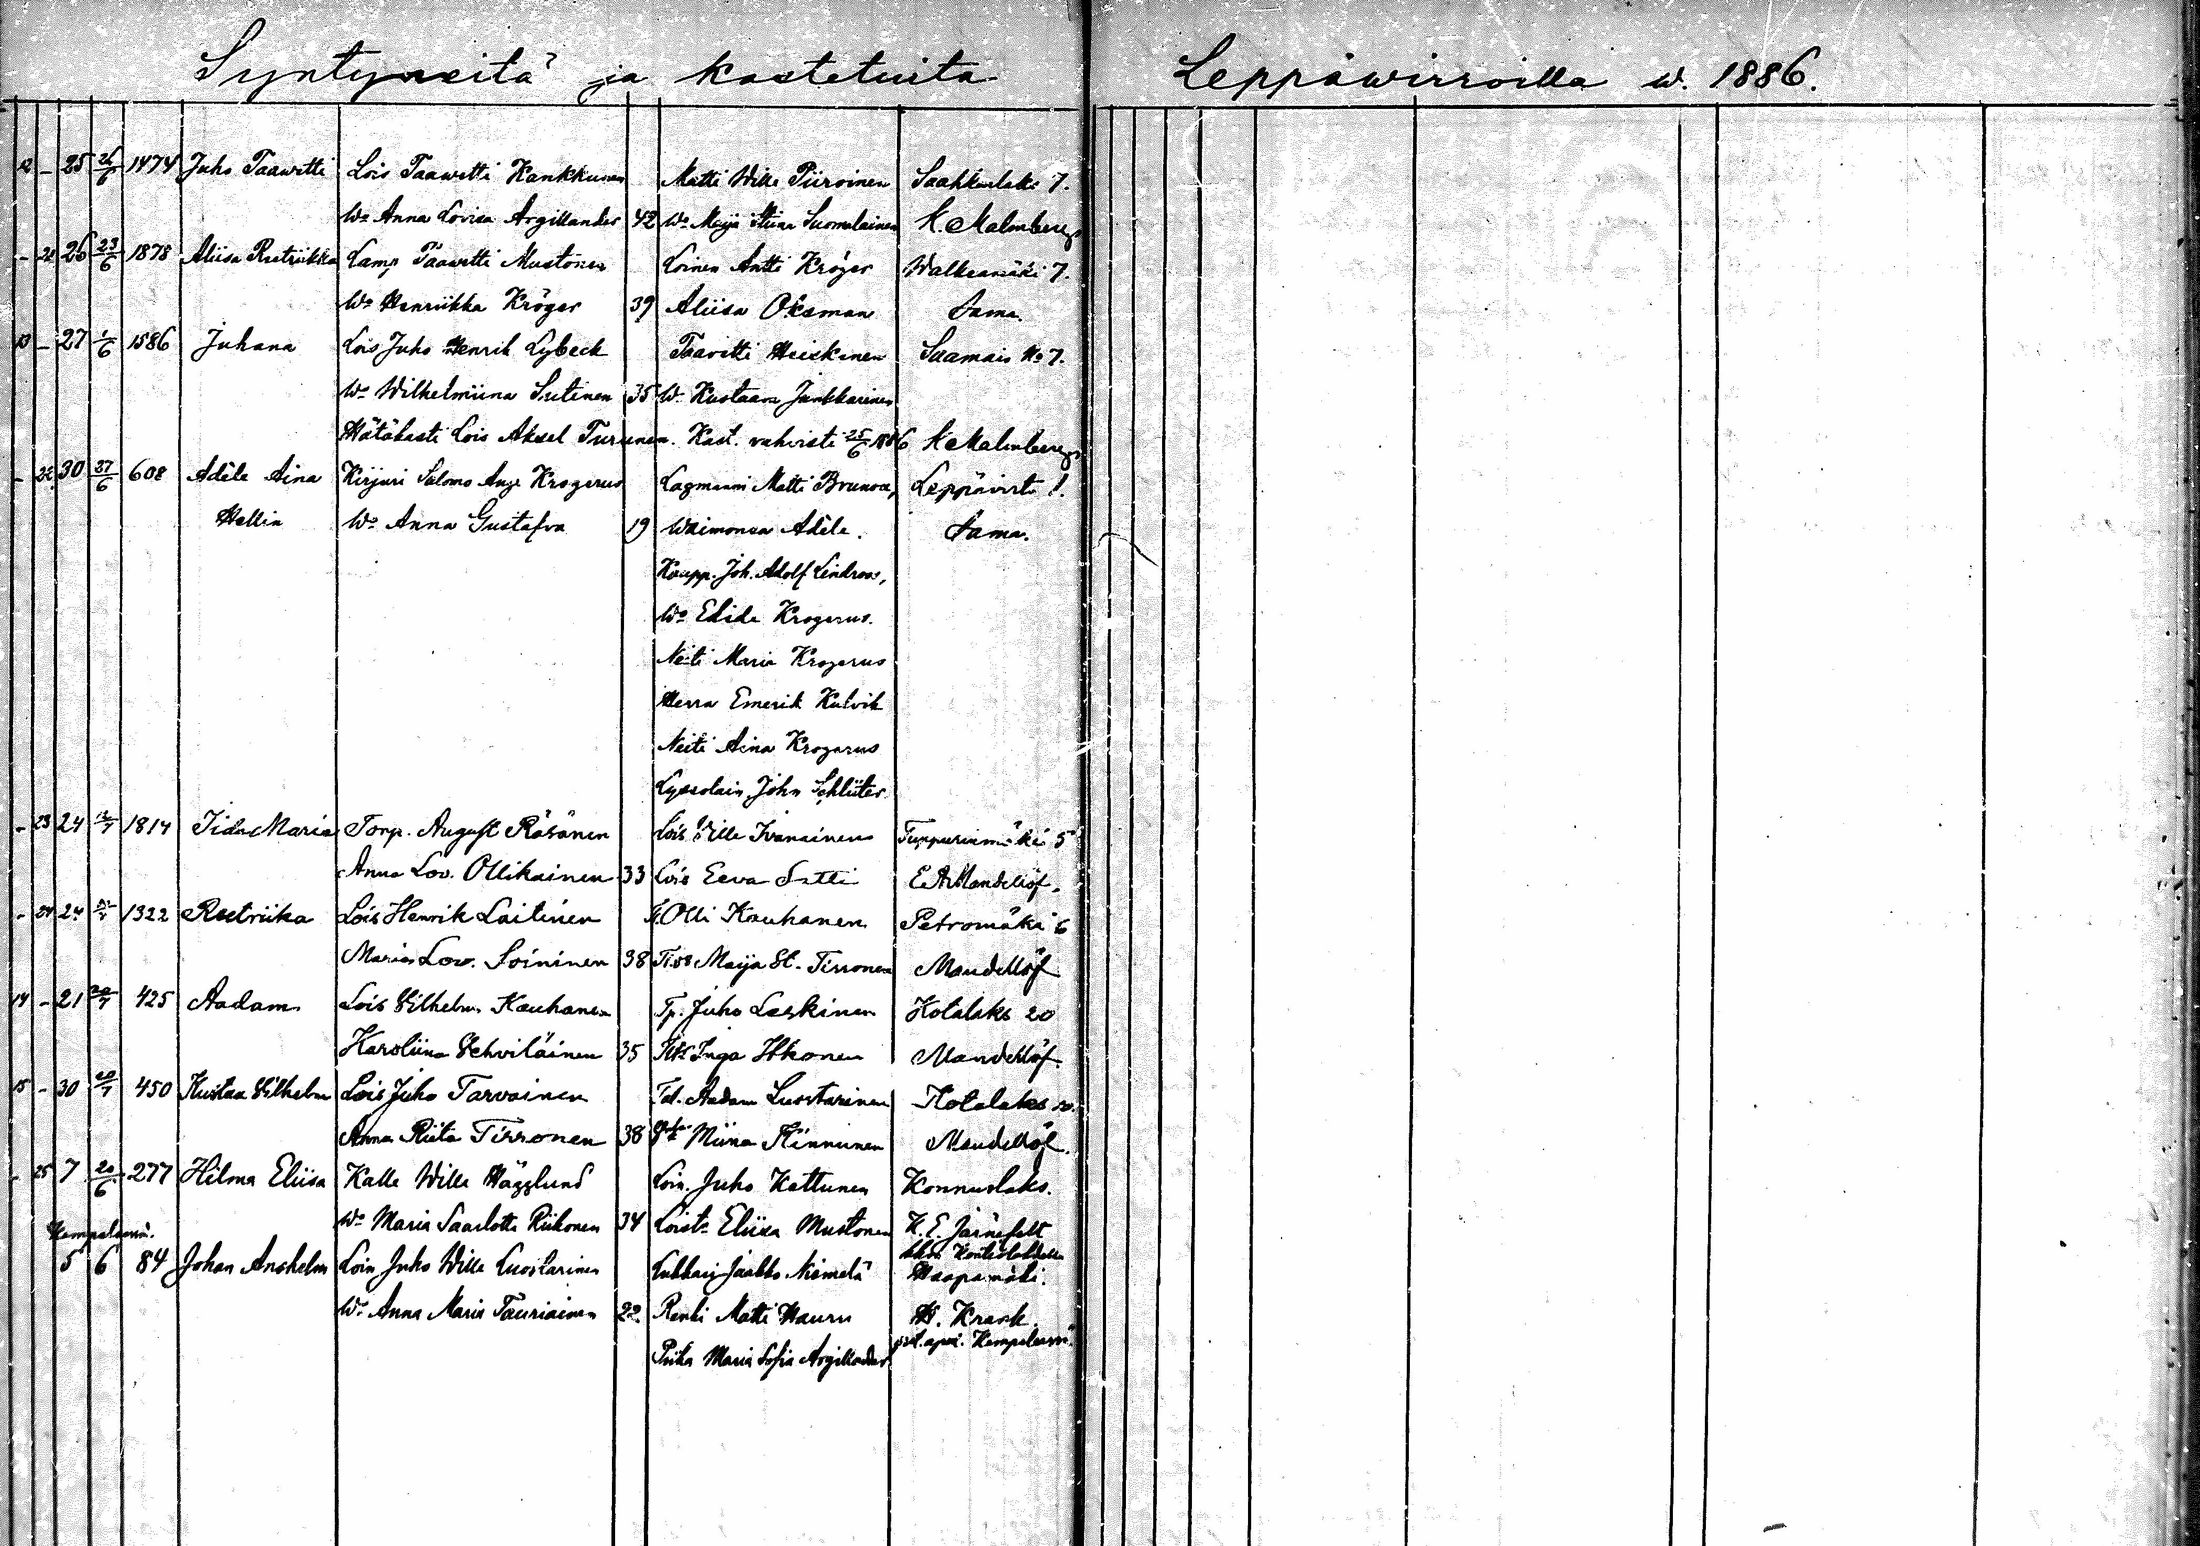 Syntyneitä ja kastetuita Leppäwirroilla w. 1886.
12 - 25 26/6 1474 Juho Taawetti Lois Taawetti Kankkunen Matti Wille Piiroinen Saahkarlaks 7.
Wo Anna Lovisa Argillander 42 Wo Maija Stiina Suomalainen K. Malmberg
- 22 26 23/6 1878 Aliisa Reetriikka Lamp Taawetti Mustonen Loinen Antti Kröger Walkeamäki 7.
Wo Henriikka Kröger 39 Aliisa Oksman Sama.
13 - 27 1/6 1586 Juhana Lois Juho Henrik Lybeck Taavitti Heiskanen Saamais No 7.
Wo Wilhelmiina Sutinen 35 Wo Kustaava Junkkarinen
Hätäkasti Lois Aksel Turunen. Kast. vahvisti 25/6 1886 K Malmberg
- 22 30 27/6 608 Adéle Aina Kirjuri Salomo Aug. Krogerus Lagmanni Matti Brunou, Leppävirta 1.
Hellin Wo Anna Gustafva 19 Waimonsa Adéle. Sama.
Kaupp. Joh. Adolf Lindroos,
Wo Elide Krogerus.
Neiti Maria Krogerus
Herra Emerik Kulvik
Neiti Aina Krogerus
Lyseolain. John Schlüter
- 23 24 /7 1814 Iida Maria Torp. August Räsänen Lois Ville Ivanainen Tuppurinmäki 5
Anna Lov. Ollikainen 33 Lois Eeva Sutti E A Mandellöf.
- 24 24 1322 Reetriika Lois Henrik Laitinen Olli Kauhanen Petromäki 6
Maria Lov. Soininen 38 Maija St. Tirronen Mandellöf
14 - 21 20/7 425 Aadam Lois Vilhelm Kauhanen Tp. Juho Leskinen Kotalaks 20
Karoliina Vehviläinen 35 Inga Itkonen Mandellöf.
15 - 30 /7 450 Kustaa Vilhelm Lois Juho Tarvainen Tal. Aadam Luostarinen Kotalaks 20.
Anna Riita Tirronen 38 Miina Kinnunen Mandellöf.
- 25 7 20/6 277 Hilma Eliisa Kalle Wille Hägglund Loin. Juho Kettunen Konnuslaks.
Wo Maria Saarlotta Riikonen 34 Loista Eliisa Mustonen K. E. Järnefelt
Kempeleessä.
5 6 84 Johan Anshelm Loin Juho Wille Luostarinen Lukkari Jaakko Niemelä Haapamäki.
Wo Anna Maria Tauriainen 22. Renki Matti Hauru H. Krank.
Piika Maria Sofia Argillander